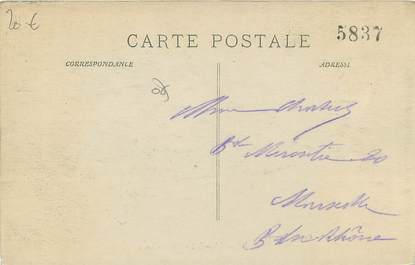 20 €
CARTE POSTALE 5837
CORRESPONDANCE ADRESSE
Mme
Bd 20
Marseille
B du Rhône